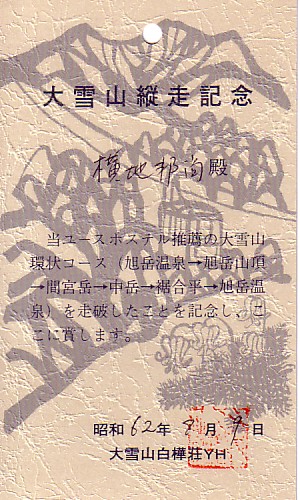 大雪山縦走記念
横地邦尚殿
当ユースホステル推薦の大雪山
環状コース（旭岳温泉→旭岳山頂
→間宮岳→中岳→裾合平→旭岳温
泉）を走破したことを記念し、こ
こに賞します。
昭和62年8月9日
大雪山白樺荘YH